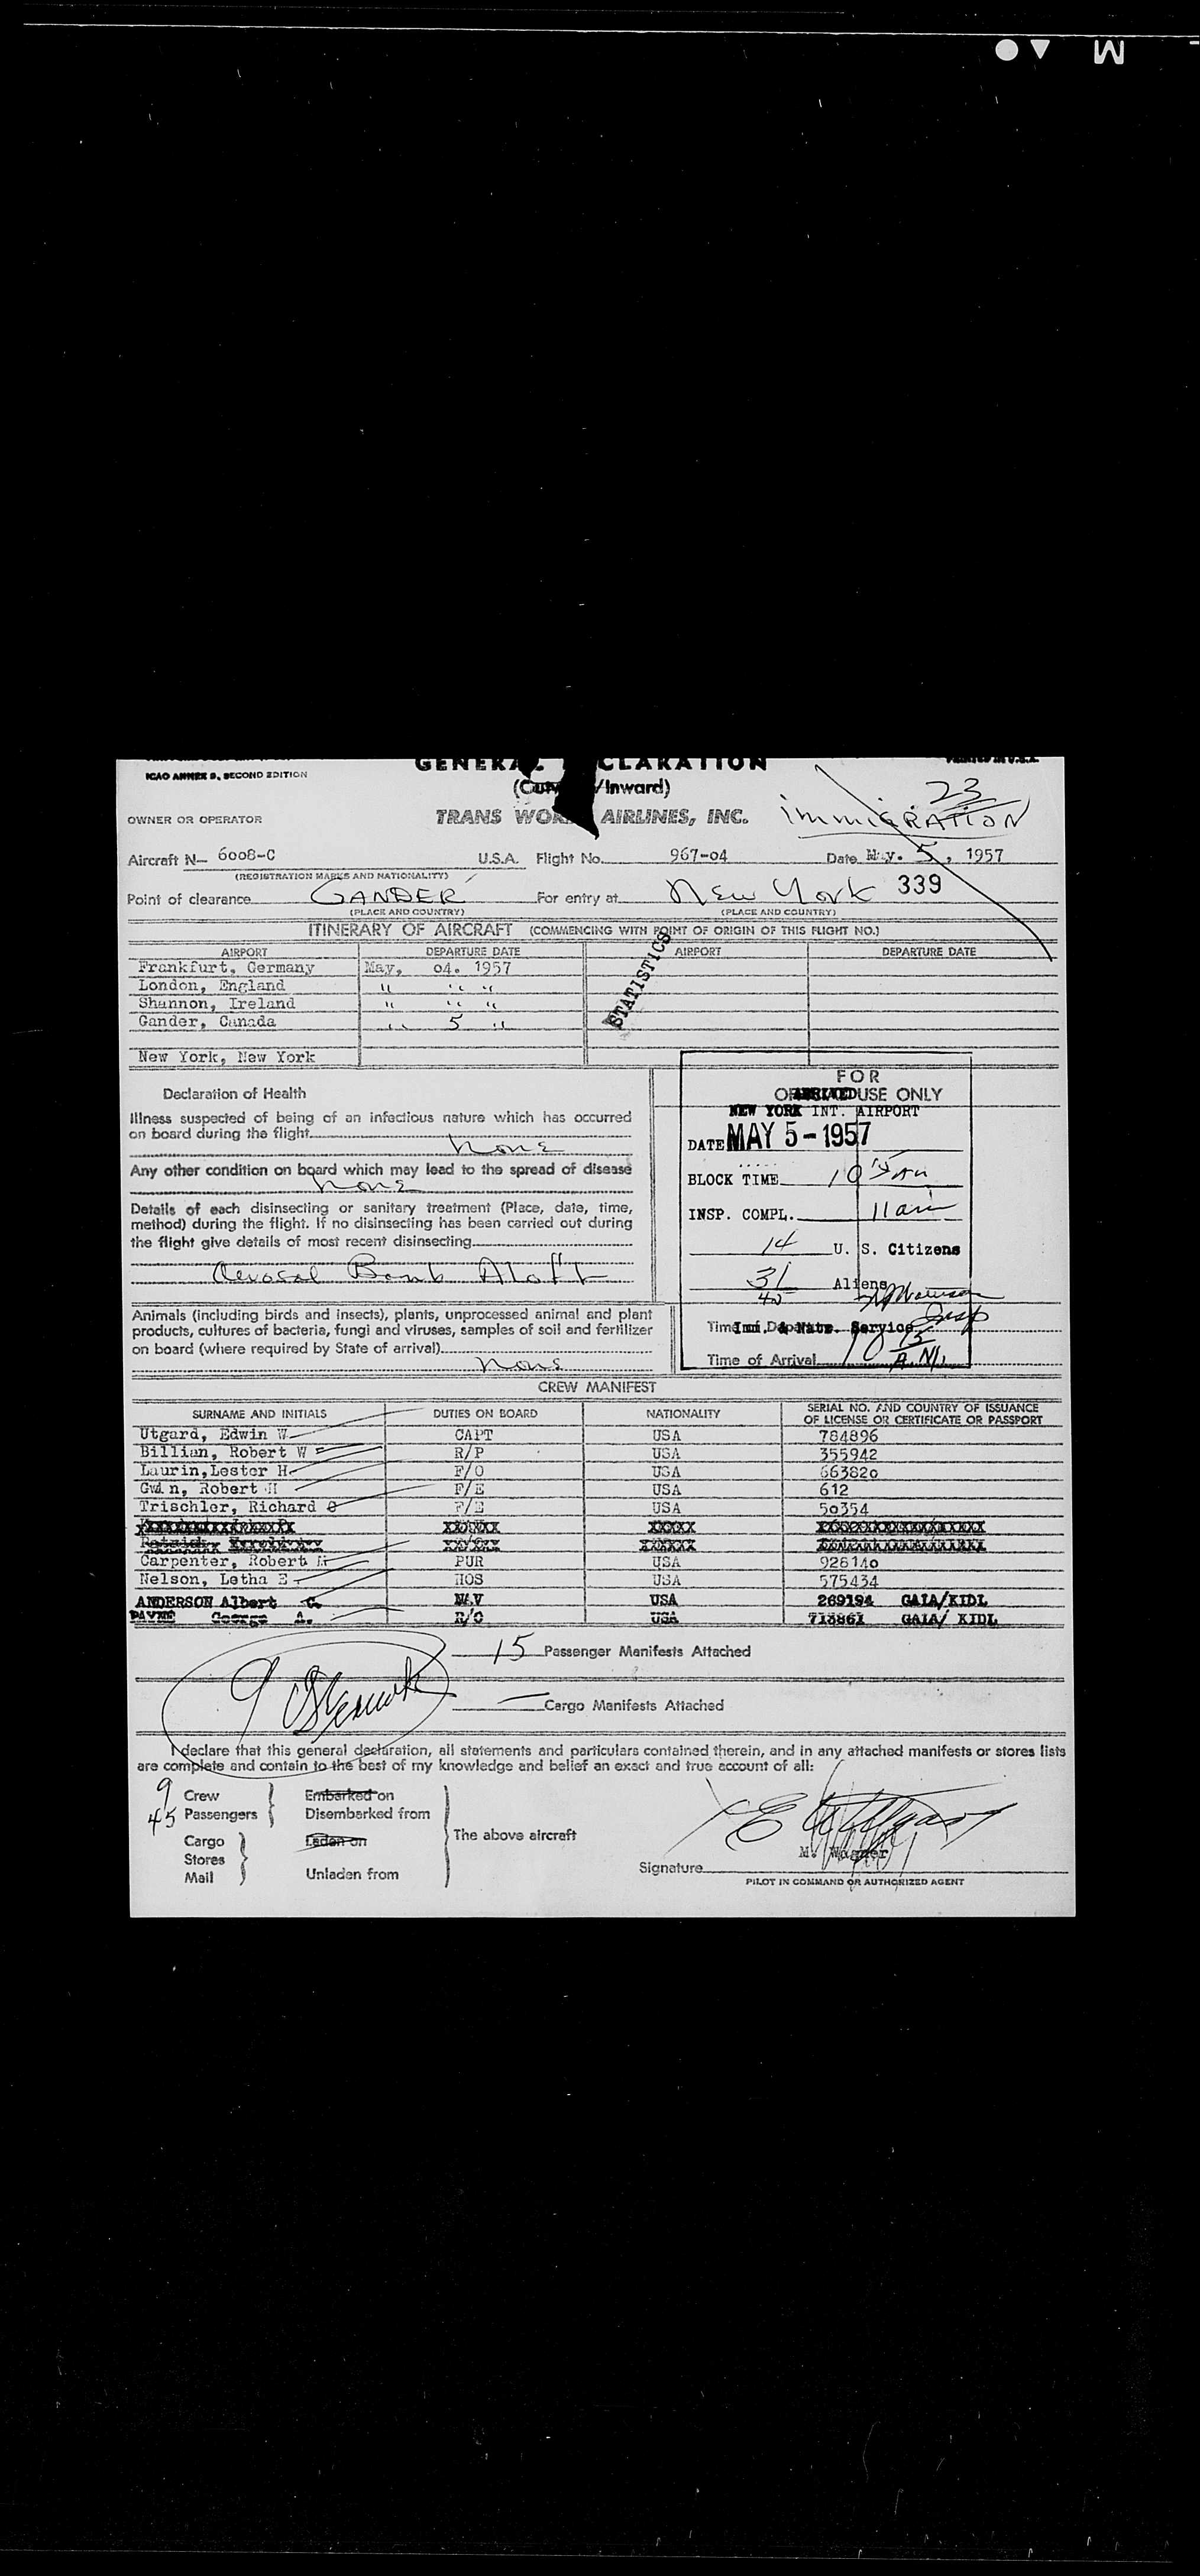 M
ICAO ANNEX 9, SECOND EDITION
GENERAL DECLARATION
PRINTED IN U.S.A.
/Inward)
23
OWNER OR OPERATOR
TRANS WORLD AIRLINES, INC.
immigRATION
Aircraft N- 6008-C U.S.A. Flight No. 967-04 Date May. 5, 1957
(REGISTRATION MARKS AND NATIONALITY)
Point of clearance GANDER For entry at New York 339
(PLACE AND COUNTRY) (PLACE AND COUNTRY)
ITINERARY OF AIRCRAFT (COMMENCING WITH POINT OF ORIGIN OF THIS FLIGHT NO.)
AIRPORT DEPARTURE DATE AIRPORT DEPARTURE DATE
Frankfurt, Germany May, 04. 1957
London, England " " "
Shannon, Ireland " " "
Gander, Canada " 5 "
New York, New York
STATISTICS
Declaration of Health
Illness suspected of being of an infectious nature which has occurred
on board during the flight
None
Any other condition on board which may lead to the spread of disease
None
Details of each disinsecting or sanitary treatment (Place, date, time,
method) during the flight. If no disinsecting has been carried out during
the flight give details of most recent disinsecting
Aerosal Bomb Aloft
Animals (including birds and insects), plants, unprocessed animal and plant
products, cultures of bacteria, fungi and viruses, samples of soil and fertilizer
on board (where required by State of arrival)
None
FOR
OFFICIAL USE ONLY
ARRIVED
NEW YORK INT. AIRPORT
DATE MAY 5-1957
BLOCK TIME 10 15 AM
INSP. COMPL. 11 am
14 U. S. Citizens
31 Aliens
45
Insp
Imm. & Natz. Service
Time of Arrival 10 15 A.M.
CREW MANIFEST
SURNAME AND INITIALS DUTIES ON BOARD NATIONALITY SERIAL NO. AND COUNTRY OF ISSUANCE OF LICENSE OR CERTIFICATE OR PASSPORT
Utgard, Edwin W CAPT USA 784896
Billian, Robert W R/P USA 355942
Laurin, Lester H F/O USA 663820
Gwin, Robert H F/E USA 612
Trischler, Richard F/E USA 50354
Carpenter, Robert M PUR USA 926140
Nelson, Letha E HOS USA 575434
ANDERSON Albert C. NAV USA 269194 GAIA/KIDL
PAYNE George A. R/O USA 713861 GAIA/ KIDL
15 Passenger Manifests Attached
9
Cargo Manifests Attached
I declare that this general declaration, all statements and particulars contained therein, and in any attached manifests or stores lists
are complete and contain to the best of my knowledge and belief an exact and true account of all:
9 Crew Embarked on
45 Passengers Disembarked from
Cargo Laden on
Stores
Mail Unladen from
The above aircraft
M. Wagner
Signature
PILOT IN COMMAND OR AUTHORIZED AGENT